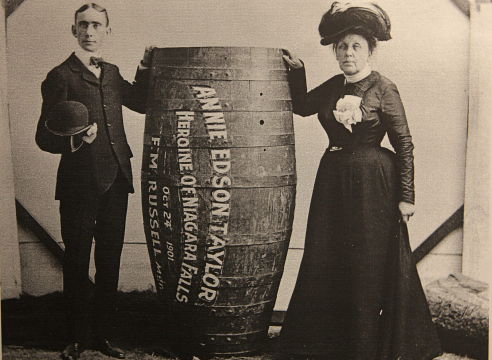 ANNIE EDSON TAYLOR
HEROINE OF NIAGARA FALLS
OCT 24 1901
F.M. RUSSELL